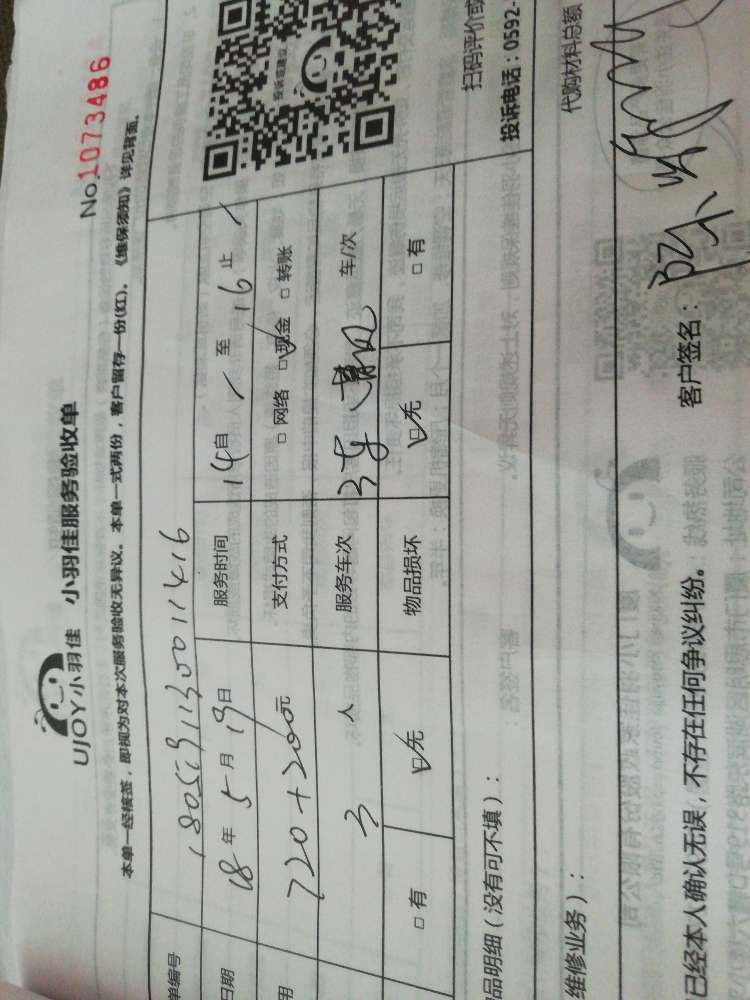 UJOY小羽佳 小羽佳服务验收单
No.1073486
本单一经核签，即视为对本次服务验收无异议。本单一式两份，客户留存一份(红)。《维保须知》详见背面。
单编号
日期 18年5月19日 服务时间 14自 至 16止
用 720+200元 支付方式 □网络 ☑现金 □转账
3人 服务车次 3车 车/次
□有 ☑无 物品损坏 ☑无 □有
投诉或建议
扫码评价或
投诉电话：0592-
品明细（没有可不填）：
代购材料总额
维修业务）：
已经本人确认无误，不存在任何争议纠纷。 客户签名：